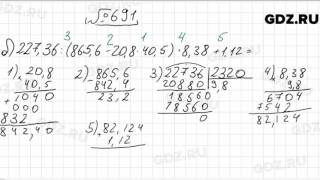 GDZ.RU
№691.
3 2 1 4 5
б) 227,36 : (865,6 - 20,8·40,5) · 8,38 + 1,12 =
1) 20,8
40,5
+ 1040
000
832
842,40
2) 865,6
842,4
23,2
3) 22736 2320
20880 9,8
18560
18560
0
4) 8,38
9,8
6704
7542
82,124
5) 82,124
1,12